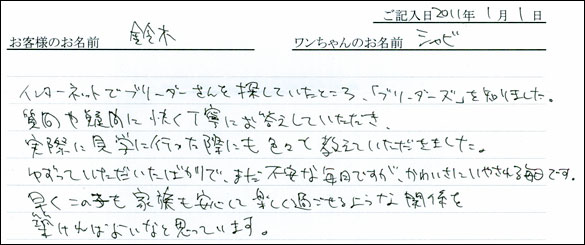 ご記入日2011年1月1日
お客様のお名前 鈴木 ワンちゃんのお名前 シャビ
インターネットでブリーダーさんを探していたところ、「ブリーダーズ」を知りました。
質問や疑問に快く丁寧にお答えしていただき、
実際に見学に行った際にも色々と教えていただきました。
ゆずっていただいたばかりで、まだ不安な毎日ですが、かわいさにいやされる毎日です。
早くこの子も家族も安心して楽しく過ごせるような関係を
築ければよいなと思っています。